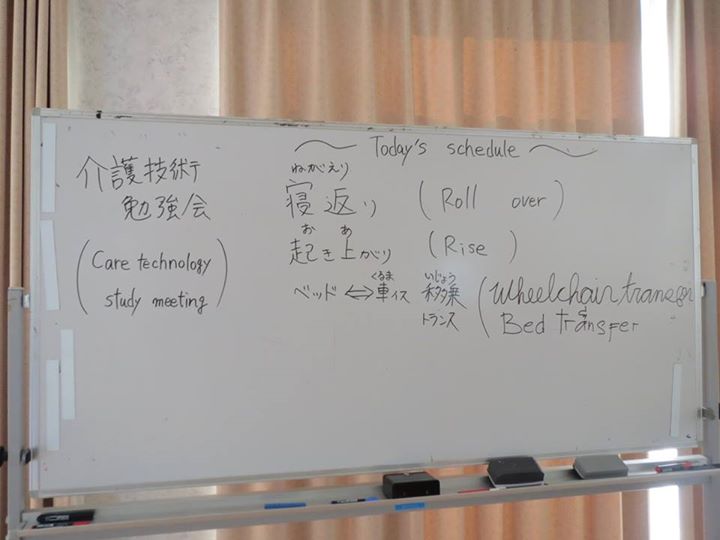 介護技術
勉強会
(Care technology
study meeting)
~ Today's schedule ~
ねがえり
寝返り (Roll over)
お あ
起き上がり (Rise)
くるま いじょう
ベッド ⇔ 車イス 移乗 (Wheelchair transfer
トランス Bed transfer